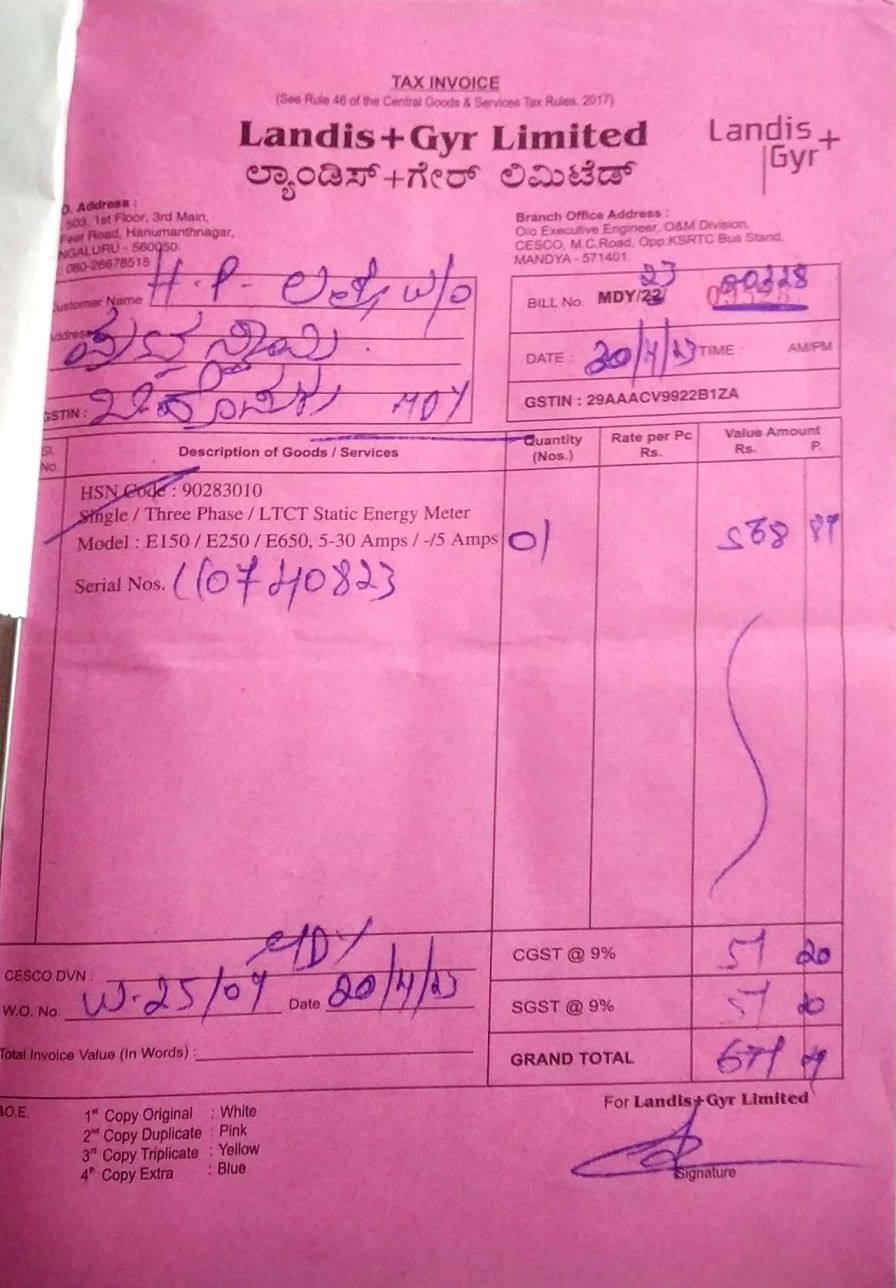 TAX INVOICE
(See Rule 46 of the Central Goods & Services Tax Rules, 2017)
Landis+Gyr Limited
ಲ್ಯಾಂಡಿಸ್+ಗೇರ್ ಲಿಮಿಟೆಡ್
Landis+
Gyr
Address :
503, 1st Floor, 3rd Main,
Feet Road, Hanumanthnagar,
NGALURU - 560050.
080-26678515
Branch Office Address :
O/o Executive Engineer, O&M Division,
CESCO, M.C.Road, Opp:KSRTC Bus Stand,
MANDYA - 571401.
ustomer Name H.P. W/O
ddress
GSTIN : MDY
BILL No. MDY/22/ 23
DATE : 20/4/23 TIME : AM/PM
GSTIN : 29AAACV9922B1ZA
Sl. No. Description of Goods / Services Quantity (Nos.) Rate per Pc Rs. Value Amount Rs. P.
HSN Code : 90283010
Single / Three Phase / LTCT Static Energy Meter
Model : E150 / E250 / E650, 5-30 Amps / -/5 Amps 01
Serial Nos.
CESCO DVN : MDY
W.O. No. Date 20/4/23
Total Invoice Value (In Words) :
CGST @ 9% 51 20
SGST @ 9% 51 20
GRAND TOTAL
&O.E.
1st Copy Original : White
2nd Copy Duplicate : Pink
3rd Copy Triplicate : Yellow
4th Copy Extra : Blue
For Landis+Gyr Limited
Signature